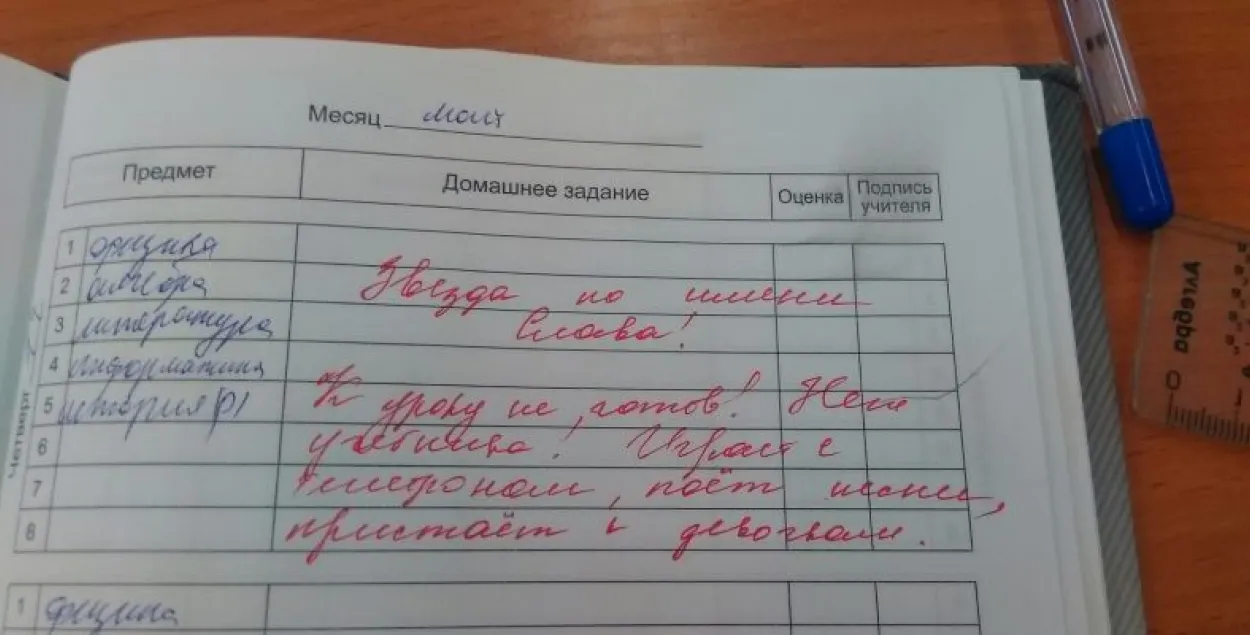 Месяц май
Предмет Домашнее задание Оценка Подпись учителя
1 физика
2 алгебра
Звезда по имени
3 литература
Слава!
4 информатика
5 история РІ
К уроку не готов! Нет
6
учебника! Играет с
7
телефоном, поёт песни,
8
пристаёт к девочкам.
Четверг
1 физика
Алгебра
0 1